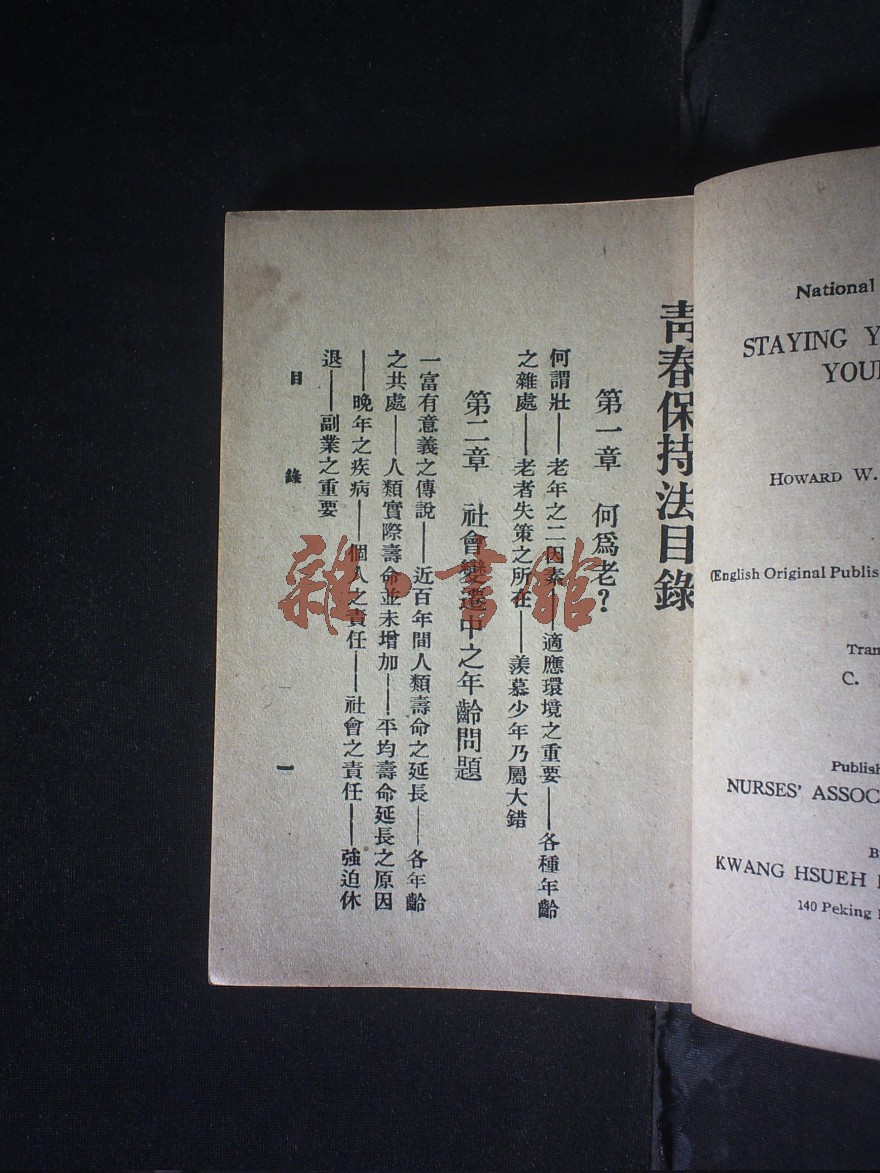 青春保持法目錄
第一章　何爲老?
何謂壯——老年之二因素——適應環境之重要——各種年齡
之雜處——老者失策之所在——羨慕少年乃屬大錯
第二章　社會變遷中之年齡問題
一富有意義之傳說——近百年間人類壽命之延長——各年齡
之共處——人類實際壽命並未增加——平均壽命延長之原因
——晚年之疾病——個人之責任——社會之責任——強迫休
退——副業之重要
目　錄
一
雜·書舘
National
STAYING
YOU
HOWARD W.
(English Original Publis
Tran
C.
Publish
NURSES' ASSOC
B
KWANG HSUEH
140 Peking